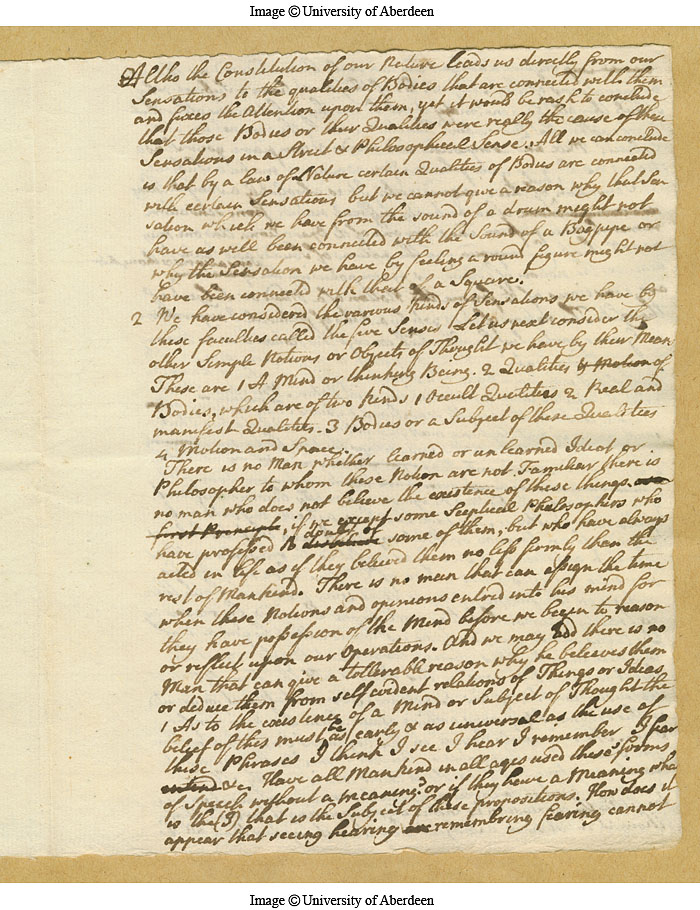 Image © University of Aberdeen
Altho the Constitution of our Nature leads us directly from our
Sensations to the qualities of Bodies that are connected with them
and fixes the Attention upon them, yet it would be rash to conclude
that those Bodies or their Qualities were really the cause of these
Sensations in a Strict & Philosophical Sense. All we can conclude
is that by a law of Nature certain Qualities of Bodies are connected
with certain Sensations but we cannot give a reason why that Sen
sation which we have from the sound of a drum might not
have as well been connected with the Sound of a Bagpipe or
why the Sensation we have by feeling a round figure might not
have been connected with that of a Square.
2 We have considered the various kinds of Sensations we have by
these faculties called the five Senses Let us next consider the
other Simple Notions or Objects of Thought we have by their Mean
These are 1 A Mind or thinking Being. 2 Qualities & Motion of
Bodies, which are of two kinds 1 Occult Qualities 2 Real and
manifest Qualities. 3 Bodies or a Subject of these Qualities
4 Motion and Space.
There is no Man whether learned or unlearned Ideot or
Philosopher to whom these Notion are not Familiar there is
no man who does not believe the existence of these things.
first Principle, if we except some Sceptical Philosophers who
have professed to doubt of some of them, but who have always
acted in life as if they believed them no less firmly than the
rest of Mankind. There is no man that can assign the time
when these Notions and opinions entred into his mind for
they have possession of the Mind before we begin to reason
or reflect upon our Operations. And we may add there is no
Man that can give a tollerable reason why he believes them
or deduce them from self evident relations of Things or Ideas
1 As to the existence of a Mind or Subject of Thought the
belief of this must be as early & as universal as the use of
these Phrases I think I see I hear I remember I fear
&c. Have all Mankind in all ages used these forms
of Speech without a meaning? or if they have a Meaning wha
is the (I) that is the Subject of these propositions. How does it
appear that seeing hearing remembring fearing cannot
Image © University of Aberdeen